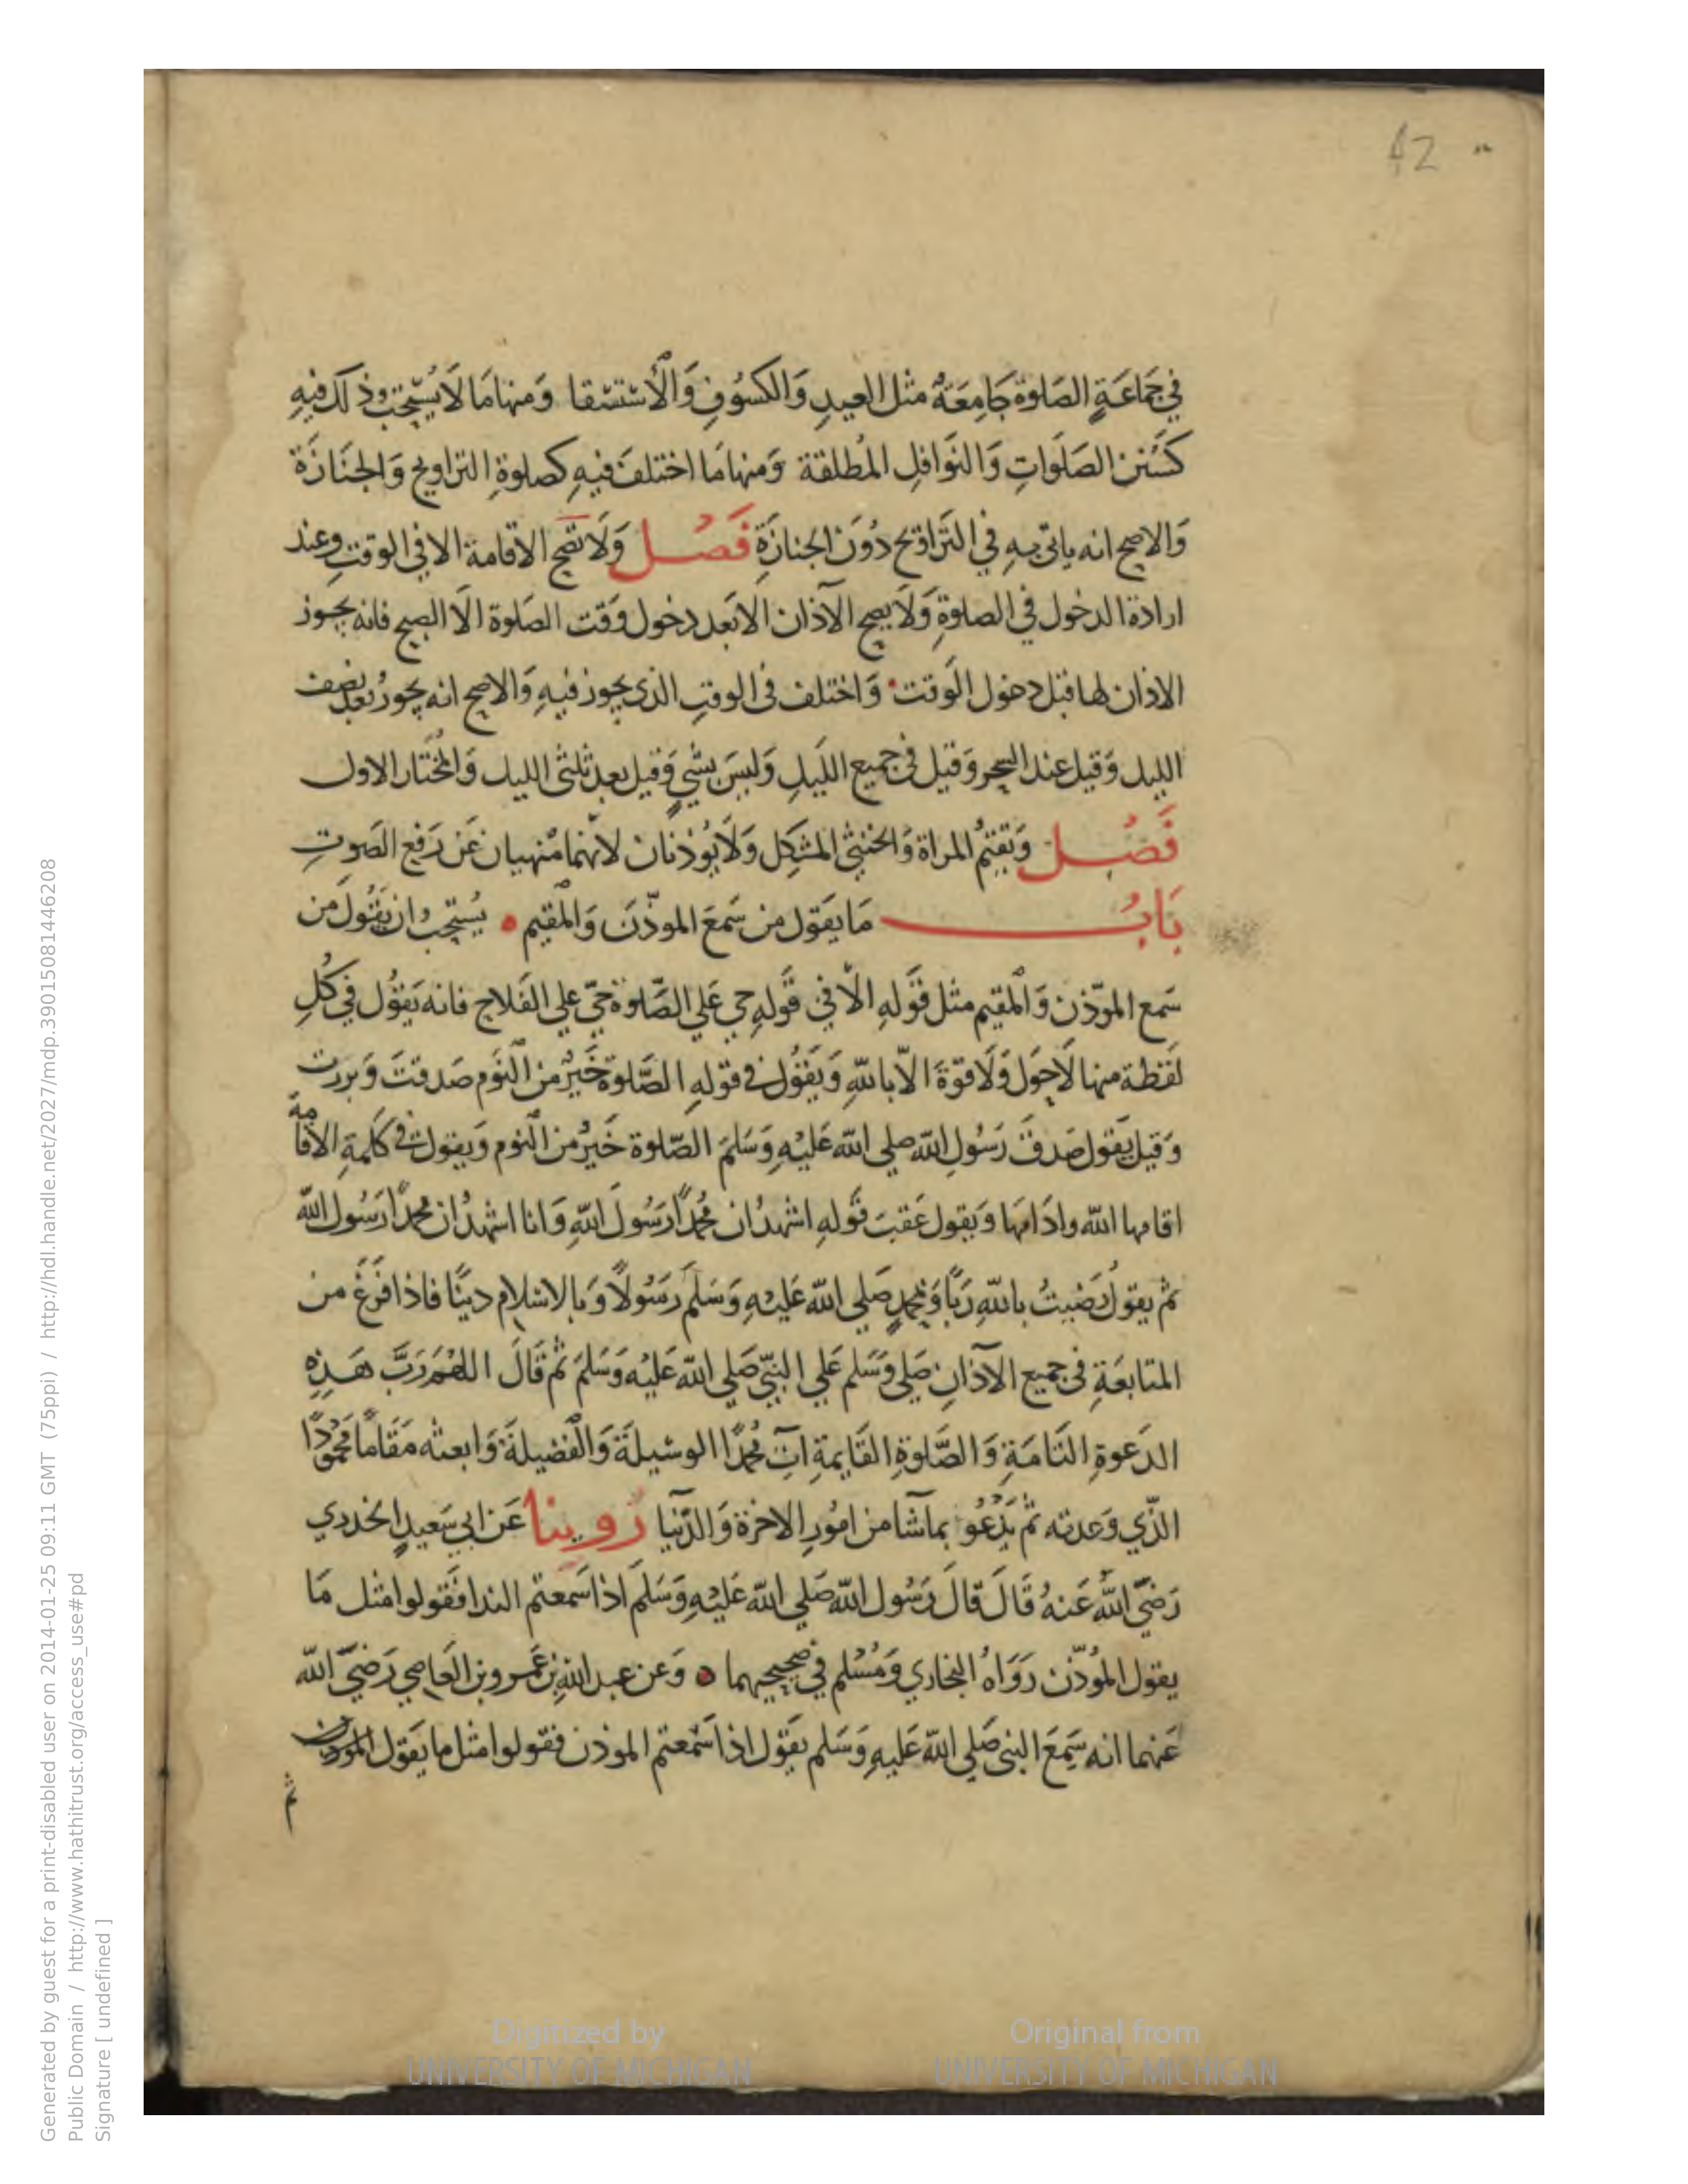 42
في جَمَاعَةٍ الصَلوة جَامِعَةٌ مثل العيدِ وَالكسُوفِ وَالْاستسقا وَمنها مَا لَا يُستحَبّ ذ لك فيهِ
كسُنن الصَلَواتِ وَالنوَافلِ المُطلقة وَمنها مَا اختلفَ فيهِ كصلوةِ التراويح وَالجنَازَة
وَالاصح انه ياتى بهِ في التَرَاوِيح دُونَ الجنازَةِ فَصْــل وَلَا تصَح الاقامة الا في الوقتِ وعند
ارادة الدخول في الصلوةِ وَلَا يصح الآذان الا بَعد دخول وَقت الصَلوة الّا الصبح فانه يجوز
الاذان لها قبل دخول الوَقت وَاختلف فى الوقتِ الذى يجوز فيهِ وَالاصح انه يجوزُ بَعد نصف
الليل وَقيل عند السحر وَقيل فى جميع اللَيلِ وَليسَ بشي وَقيل بعد ثلثى الليل وَالمُختار الاول
فَصُــل وَتقيمُ المراة وَالخنثى المشكِل وَلَا يُوذنان لانهما منهيان عَن رَفع الصَوتِ
بَابُ مَا يَقول من سَمعَ الموذّنَ وَالمُقيم يُستحبُ ان يَقولَ من
سَمع الموّذن وَالمُقيم مثل قَولهِ الّا في قَولهِ حي عَلي الصَّلوة حيّ علي الفَلاح فانه يَقوُل في كُلِ
لفَظة منها لَاحَولَ وَلَا قوّةَ الّا باللهِ وَيَقُول في قولهِ الصَّلوة خَيرٌ من النَوم صَدقتَ وَبررت
وَقيل يَقول صَدقَ رَسُول الله صلي الله عَليْهِ وَسَلمَ الصّلوة خَيرٌ من النوم وَيقول في كَلمةِ الاقامة
اقامها الله وادَامهَا وَيقول عَقبَ قَولهِ اشهدُ ان مُحمدًا رَسُولَ اللهِ وَانا اشهدُ ان محمدًا رَسُول الله
ثم يقولُ رَضيتُ باللهِ رَبًا وَبمحمدٍ صَلي الله عَليْهِ وَسَلمَ رَسُولًا وَبالاسلام دينًا فاذا فَرَغَ من
المتابعَةِ فى جميع الآذانِ صَلي وَسَلم عَلي النبيّ صَلي الله عَليْه وَسَلمَ ثمّ قَالَ اللهُمَ رَبَّ هَـذِهِ
الدَعوة التَامَةِ وَالصَّلوةِ القَايمةِ اتِ مُحمدًا الوسيلَةَ وَالْفَضيلَةَ وَابعثه مَقَامًا مَحمُودًا
الذّي وَعدته ثم يَدْعُو بماشا من امُورِ الاخرة وَالدّنيا رَوينا عَن ابي سَعيدٍ الخدري
رَضيَ اللهُ عَنهُ قَالَ قالَ رَسُول الله صَلي الله عَليْهِ وَسَلمَ اذا سَمعتم الندا فَقولوا مثل مَا
يقول المُؤذّن رَوَاهُ البخاري وَمُسْلم في صحيحيهما وَعَن عبد اللهِ بن عَمرو بن العَاصِي رَضيَ الله
عَنهما انه سَمِعَ النبى صَلي الله عَليهِ وَسَلم يَقول اذا سَمعتم الموذن فقولوا مثل ما يَقول الموذن
ثم
Digitized by
UNIVERSITY OF MICHIGAN
Original from
UNIVERSITY OF MICHIGAN
Generated by guest for a print-disabled user on 2014-01-25 09:11 GMT (75ppi) / http://hdl.handle.net/2027/mdp.39015081446208
Public Domain / http://www.hathitrust.org/access_use#pd
Signature [ undefined ]